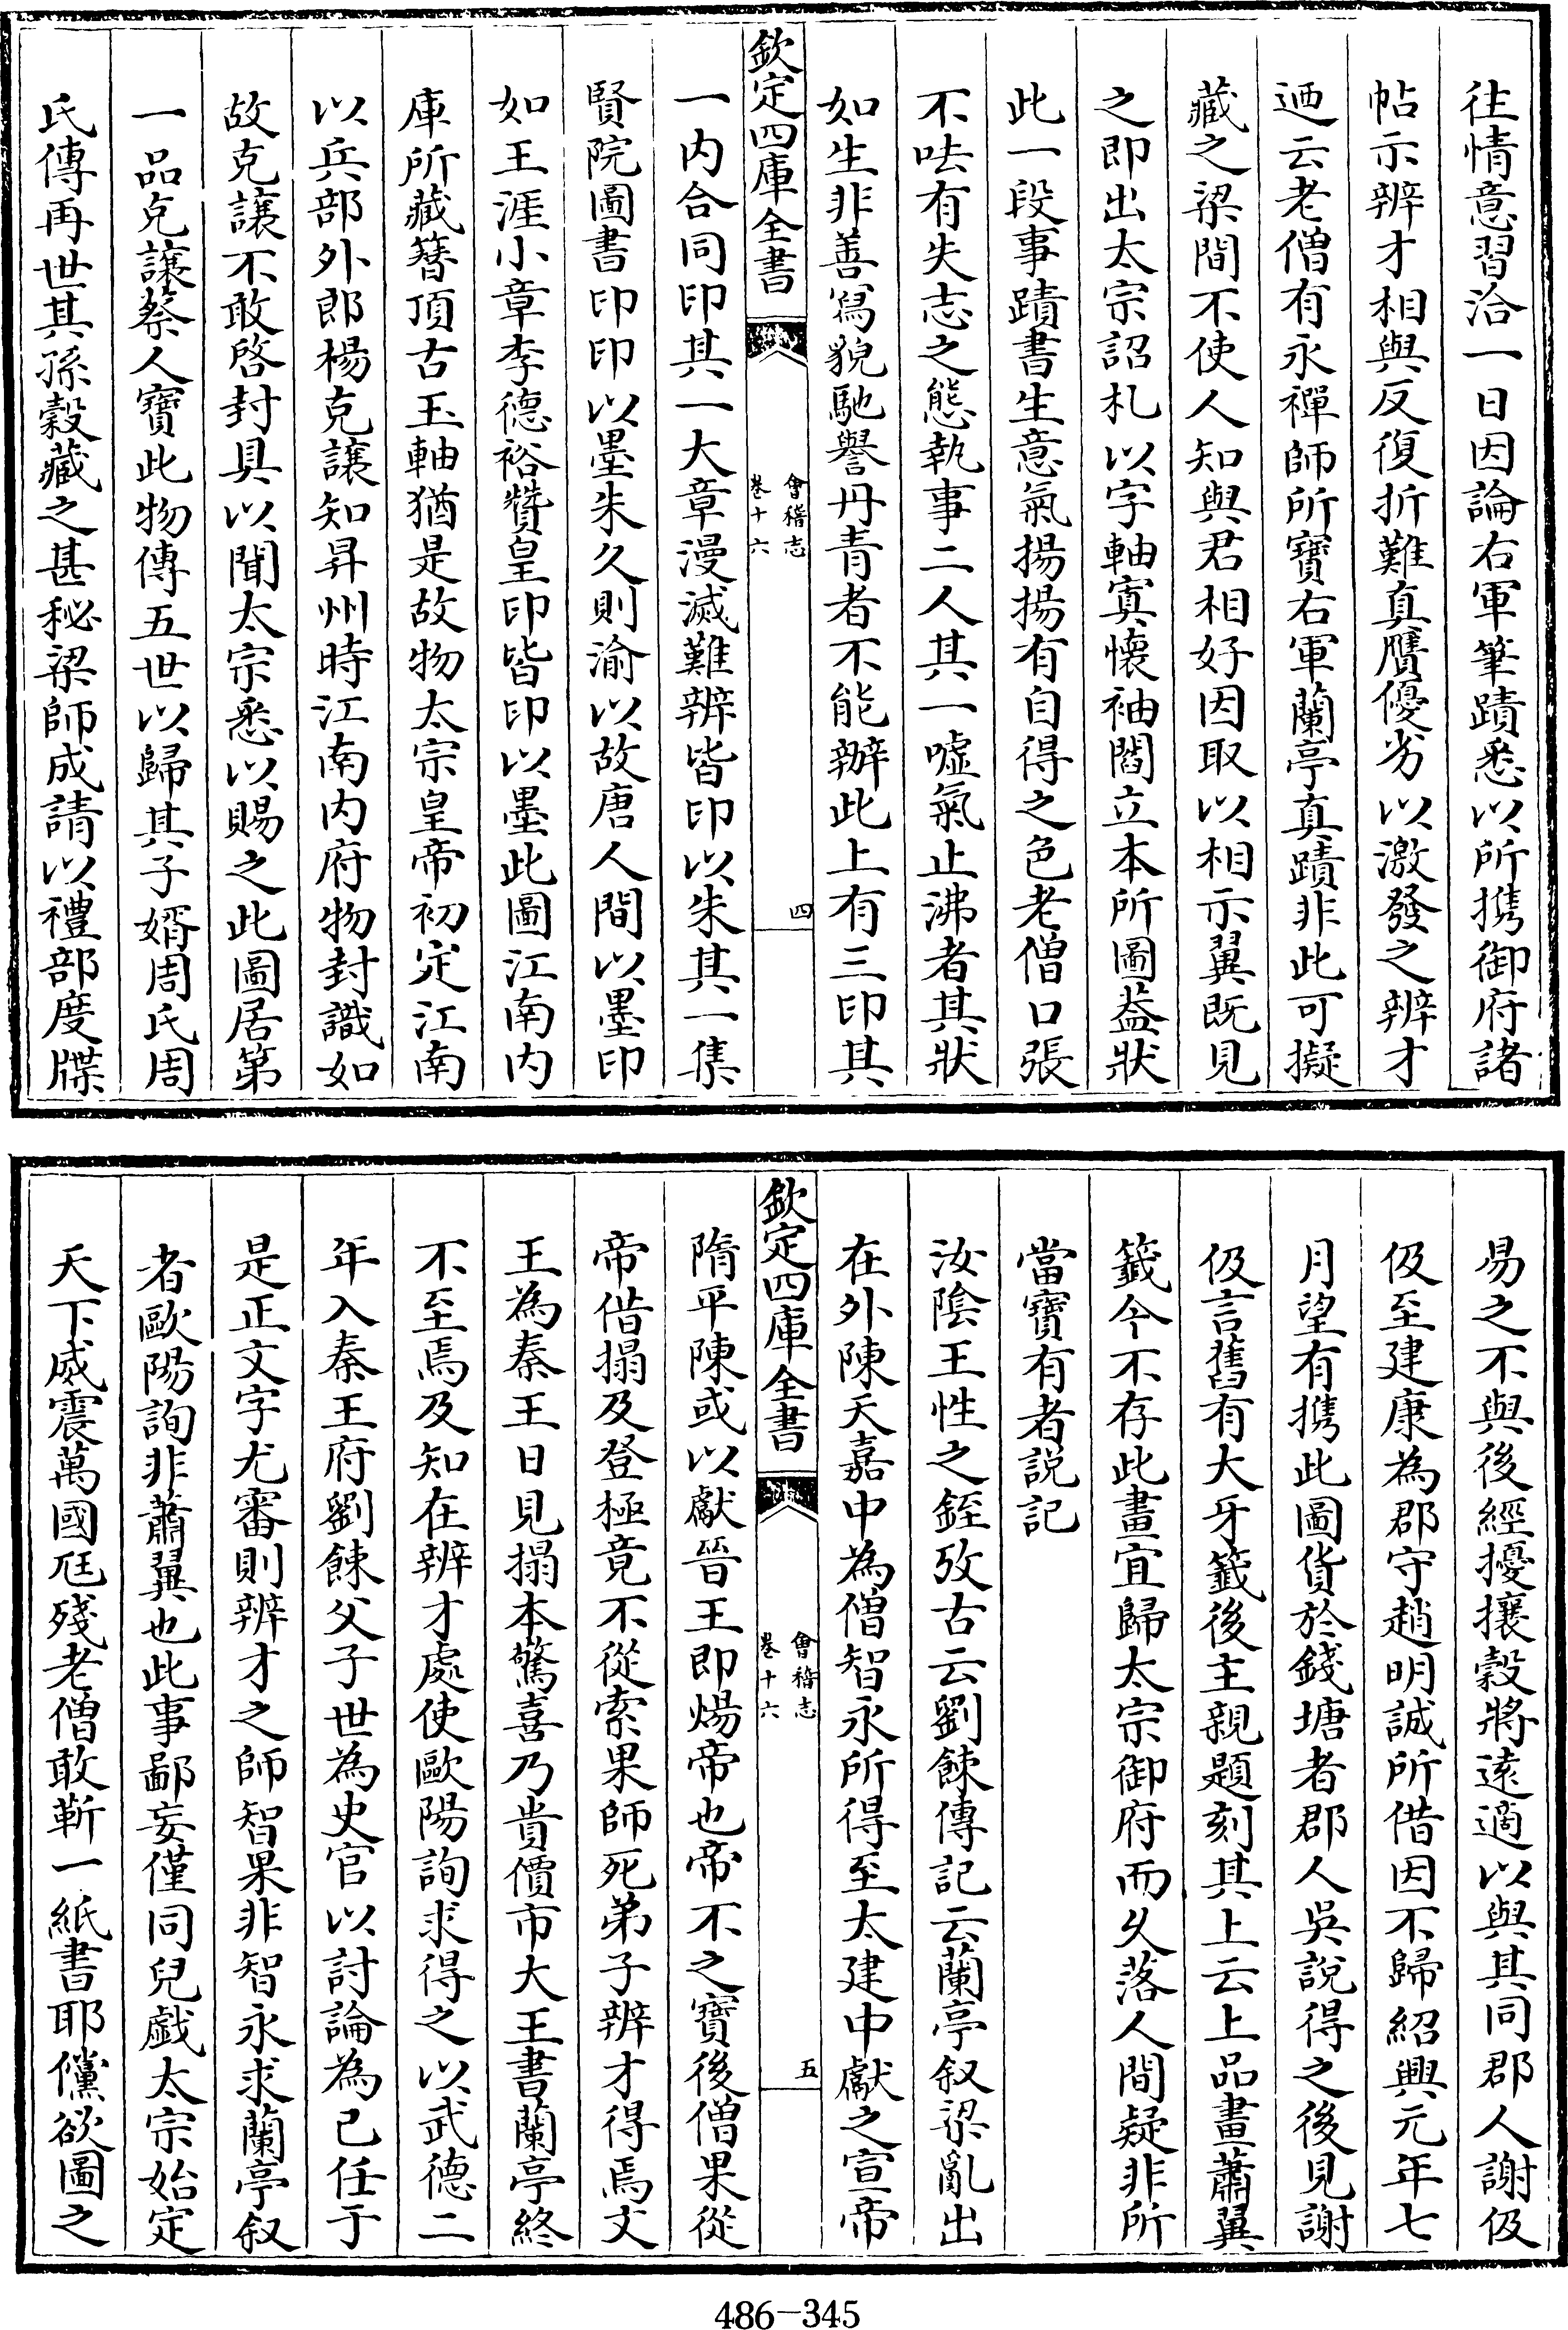 往情意習洽一日因論右軍筆蹟悉以所携御府諸
帖示辨才相與反復折難真贋優劣以激發之辨才
迺云老僧有永禪師所寶右軍蘭亭真蹟非此可擬
藏之梁間不使人知與君相好因取以相示翼既見
之即出太宗詔札以字軸寘懷袖閻立本所圖葢狀
此一段事蹟書生意氣揚揚有自得之色老僧口張
不呿有失志之態執事二人其一噓氣止沸者其狀
如生非善寫貌馳譽丹青者不能辦此上有三印其
欽定四庫全書
會稽志
卷十六
四
一内合同印其一大章漫滅難辨皆印以朱其一集
賢院圖書印印以墨朱久則渝以故唐人間以墨印
如王涯小章李德裕贊皇印皆印以墨此圖江南内
庫所藏簪頂古玉軸猶是故物太宗皇帝初定江南
以兵部外郎楊克讓知昇州時江南内府物封識如
故克讓不敢啓封具以聞太宗悉以賜之此圖居第
一品克讓蔡人寶此物傳五世以歸其子婿周氏周
氏傳再世其孫穀藏之甚秘梁師成請以禮部度牒
易之不與後經擾攘穀將逺適以與其同郡人謝伋
伋至建康為郡守趙明誠所借因不歸紹興元年七
月望有携此圖貨於錢塘者郡人吳説得之後見謝
伋言舊有大牙籤後主親題刻其上云上品畫蕭翼
籤今不存此畫宜歸太宗御府而乆落人間疑非所
當寶有者説記
汝陰王性之銍攷古云劉餗傳記云蘭亭叙梁亂出
在外陳天嘉中為僧智永所得至太建中獻之宣帝
欽定四庫全書
會稽志
卷十六
五
隋平陳或以獻晉王即煬帝也帝不之寶後僧果從
帝借搨及登極竟不從索果師死弟子辨才得焉文
王為秦王日見搨本驚喜乃貴價市大王書蘭亭終
不至焉及知在辨才處使歐陽詢求得之以武德二
年入秦王府劉餗父子世為史官以討論為己任于
是正文字尤審則辨才之師智果非智永求蘭亭叙
者歐陽詢非蕭翼也此事鄙妄僅同兒戯太宗始定
天下威震萬國尫殘老僧敢靳一紙書耶儻欲圖之
486-345